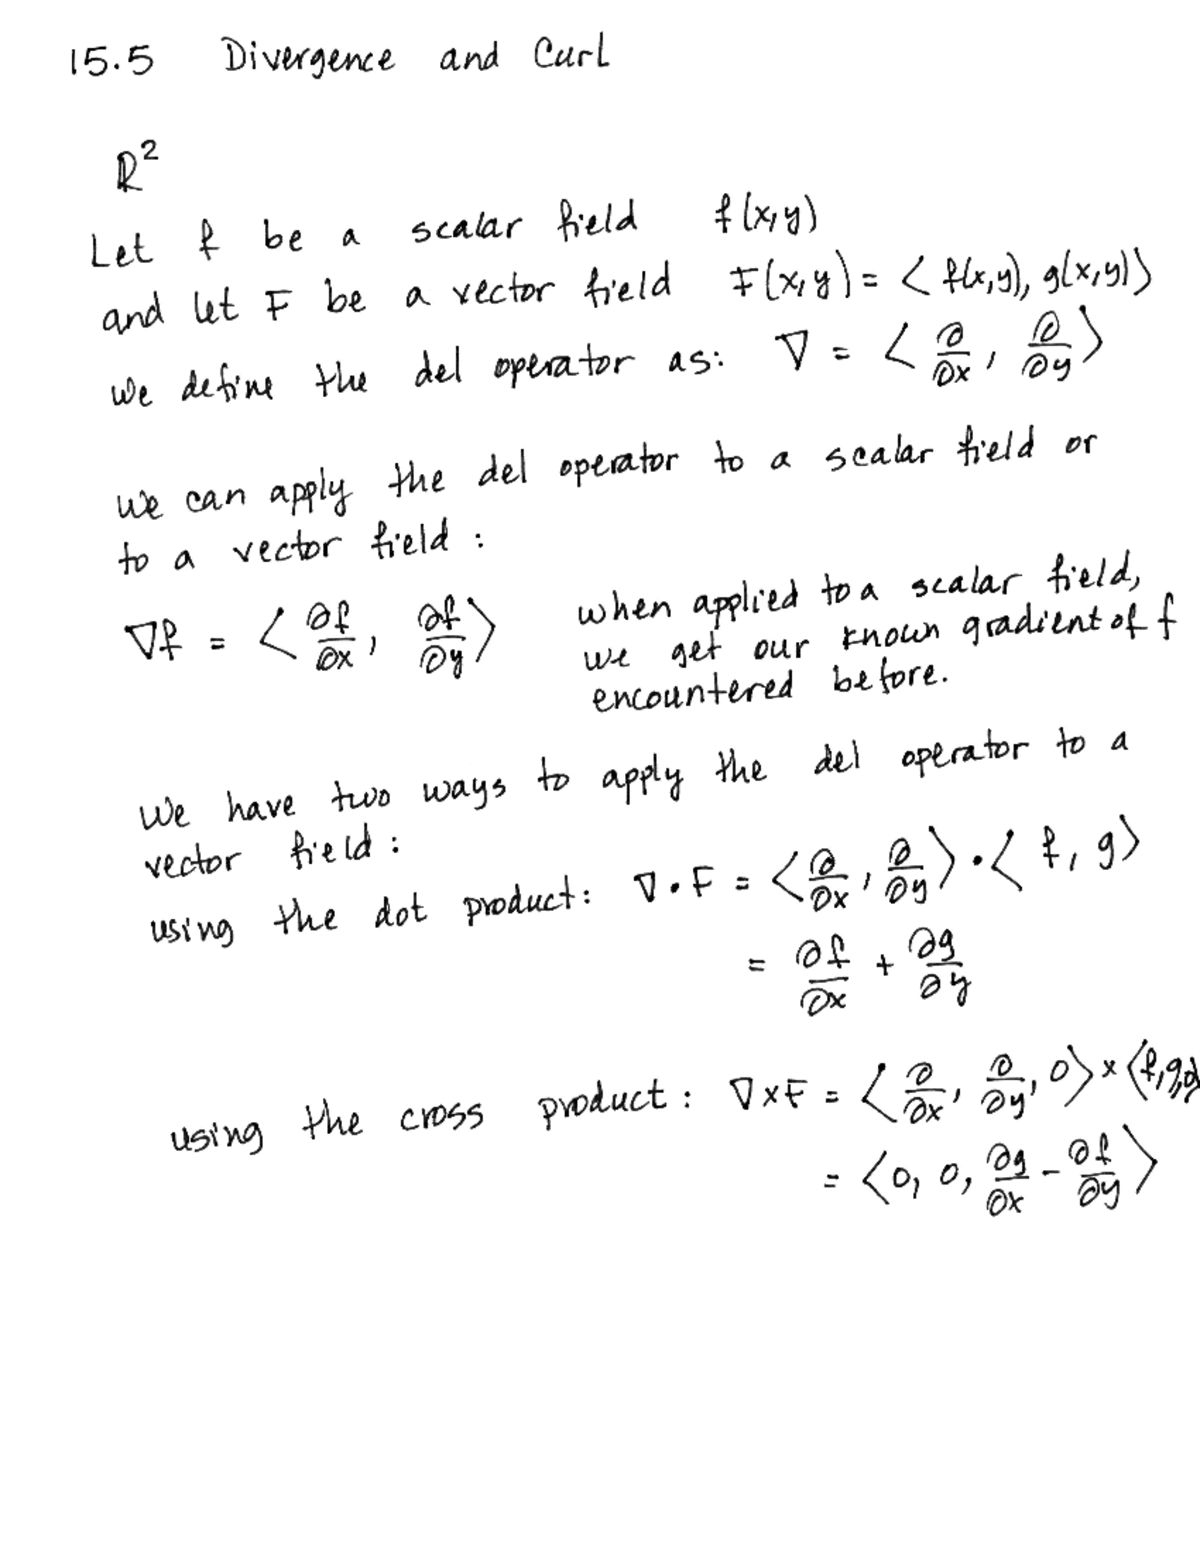 15.5 Divergence and Curl
R²
Let f be a scalar field f(x,y)
and let F be a vector field F(x,y) = < f(x,y), g(x,y)>
we define the del operator as: ∇ = < ∂/∂x, ∂/∂y >
we can apply the del operator to a scalar field or
to a vector field :
∇f = < ∂f/∂x, ∂f/∂y > when applied to a scalar field,
we get our known gradient of f
encountered before.
We have two ways to apply the del operator to a
vector field :
using the dot product: ∇ • F = < ∂/∂x, ∂/∂y > • < f, g >
= ∂f/∂x + ∂g/∂y
using the cross product : ∇ × F = < ∂/∂x, ∂/∂y, 0 > × < f, g, 0
= < 0, 0, ∂g/∂x - ∂f/∂y >